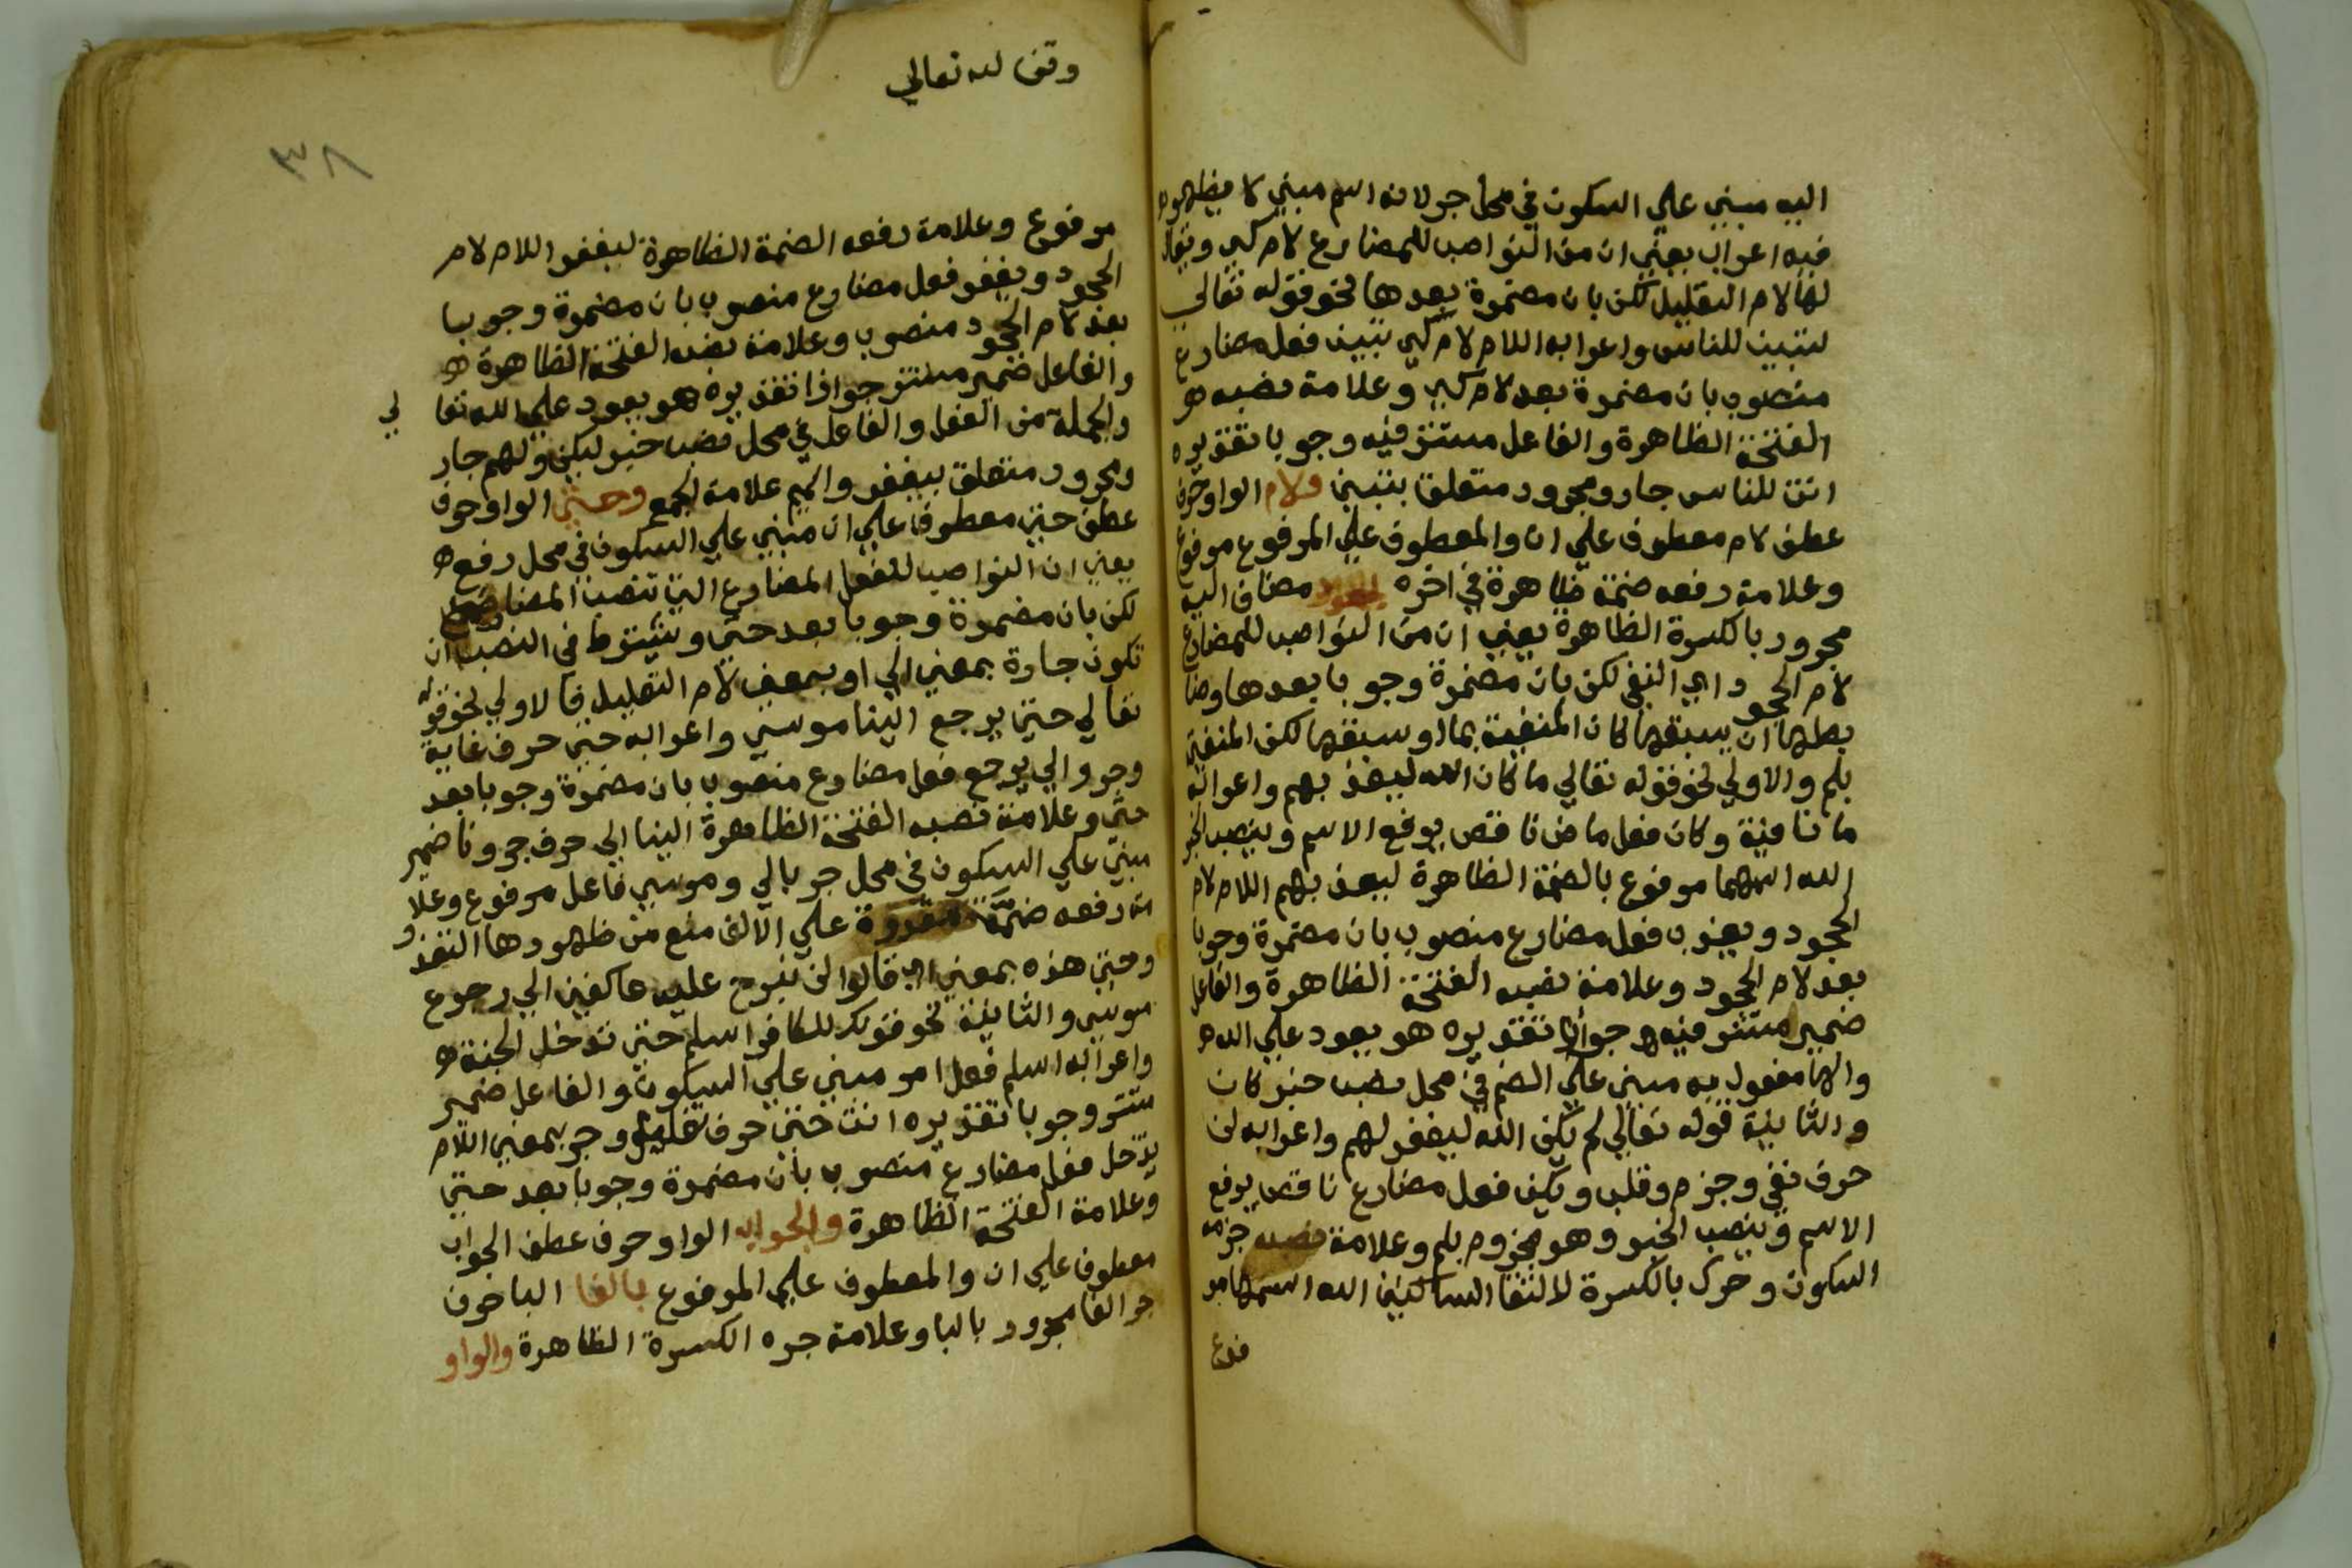 اليه مبني علي السكون في محل جر لانه اسم مبني لا يظهر
فيه اعراب يعني ان من النواصب للمضارع لام كي ويقال
لها لام التعليل لكن بان مضمرة بعدها نحو قوله تعالي
لتبين للناس واعرابه اللام لام كي تبين فعل مضارع
منصوب بان مضمرة بعد لام كي وعلامة نصبه
الفتحة الظاهرة والفاعل مستتر فيه وجوبا تقديره
انت للناس جار ومجرور متعلق بتبين ولام الواو حرف
عطف لام معطوف علي ان والمعطوف علي المرفوع مرفوع
وعلامة رفعه ضمة ظاهرة في اخره الجحود مضاف اليه
مجرور بالكسرة الظاهرة يعني ان من النواصب للمضارع
لام الجحود اي النفي لكن بان مضمرة وجوبا بعدها وضا
بطها ان يسبقها كان المنفية بما او سبقها لكن المنفي
بلم والاولي نحو قوله تعالي ما كان الله ليعذبهم واعرابه
ما نافية وكان فعل ماض ناقص يرفع الاسم وينصب الخبر
الله اسمها مرفوع بالضمة الظاهرة ليعذبهم اللام لام
الجحود ويعذب فعل مضارع منصوب بان مضمرة وجوبا
بعد لام الجحود وعلامة نصبه الفتحة الظاهرة والفاعل
ضمير مستتر فيه جوازا تقديره هو يعود علي الله
والها مفعول به مبني علي الضم في محل نصب خبر كان
والثانية قوله تعالي لم يكن الله ليغفر لهم واعرابه لن
حرف نفي وجزم وقلب ويكن فعل مضارع ناقص يرفع
الاسم وينصب الخبر وهو مجزوم بلم وعلامة جزمه
السكون وحرك بالكسرة لالتقا الساكنين الله اسمها مر
وقف لله تعالي
٣٨
مرفوع وعلامة رفعه الضمة الظاهرة ليغفر اللام لام
الجحود ويغفر فعل مضارع منصوب بان مضمرة وجوبا
بعد لام الجحود منصوب وعلامة نصبه الفتحة الظاهرة
والفاعل ضمير مستتر جوازا تقديره هو يعود علي الله تعا لي
والجملة من الفعل والفاعل في محل نصب خبر ليكن ولهم جار
ومجرور متعلق بيغفر والميم علامة الجمع وحتي الواو حرف
عطف حتي معطوف علي ان مبني علي السكون في محل رفع
يعني ان النواصب للفعل المضارع التي تنصب المضارع
لكن بان مضمرة وجوبا بعد حتي ويشترط في النصب ان
تكون جارة بمعني الي او بمعني لام التعليل فالاولي نحو قوله
تعالي حتي يرجع الينا موسي واعرابه حتي حرف غاية
وجر والي يرجع فعل مضارع منصوب بان مضمرة وجوبا بعد
حتي وعلامة نصبه الفتحة الظاهرة الينا الي حرف جر ونا ضمير
مبني علي السكون في محل جر بالي وموسي فاعل مرفوع وعلا
مة رفعه ضمة مقدرة علي الالف منع من ظهورها التعذر
وحتي هذه بمعني الي قالوا لن نبرح عليه عاكفين الي رجوع
موسي والثانية نحو قولك للكافر اسلم حتي تدخل الجنة
واعرابه اسلم فعل امر مبني علي السكون والفاعل ضمير
مستتر وجوبا تقديره انت حتي حرف تعليل وجر بمعني اللام
يدخل فعل مضارع منصوب بان مضمرة وجوبا بعد حتي
وعلامة الفتحة الظاهرة والجواب الواو حرف عطف الجواب
معطوف علي ان والمعطوف علي المرفوع بالفا البا حرف
جر الفا مجرور بالبا وعلامة جره الكسرة الظاهرة والواو